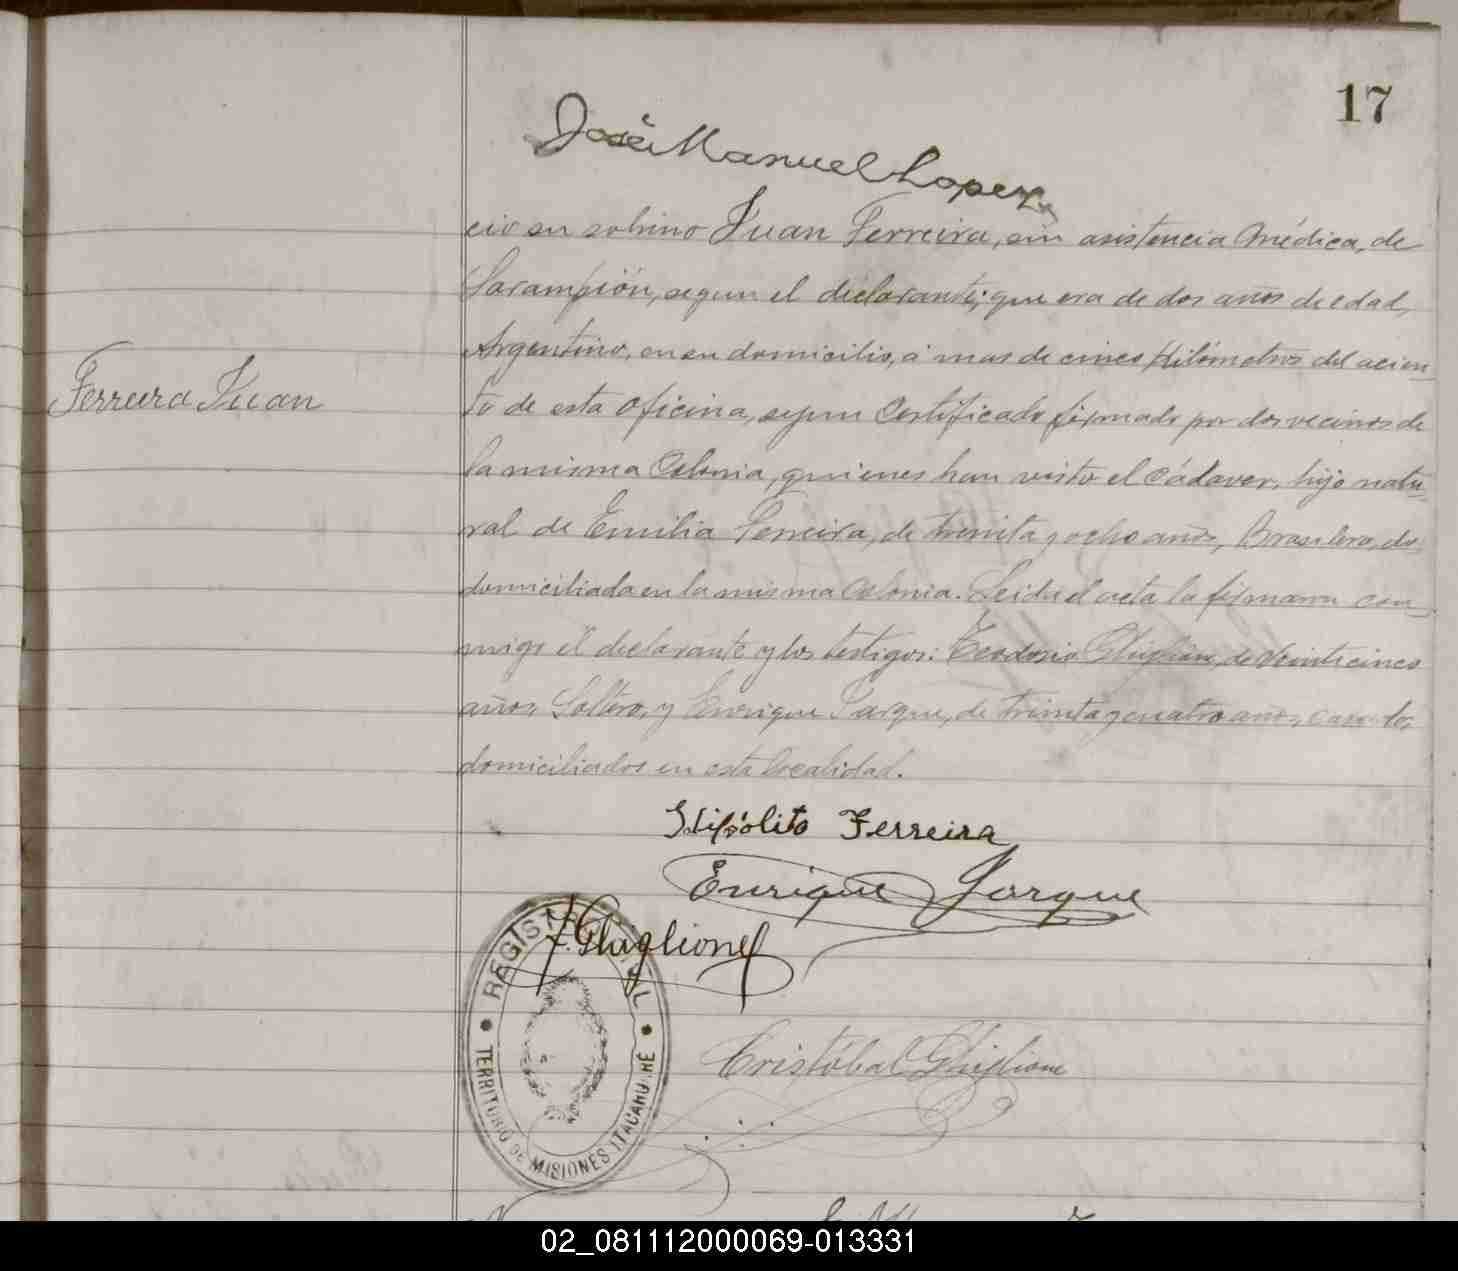 17
José Manuel Lopez
cio su sobrino Juan Ferreira, sin asistencia médica, de
Sarampión, segun el declarante; que era de dos años de edad,
Argentino, en su domicilio, á mas de cinco Kilómetros del acien-
Ferreira Juan
to de esta oficina, segun Certificado firmado por dos vecinos de
la misma Colonia, quienes han visto el cádaver, hijo natu-
ral de Emilia Ferreira, de treinta y ocho años, Brasilera, do
domiciliada en la misma Colonia. Leida el acta la firmaron con-
migo el declarante y los testigos: Teodosio Ghiglione, de veinticinco
años, Soltero, y Enrique Jarque, de treinta y cuatro años, casado,
domiciliados en esta localidad.
Hipólito Ferreira
Enrique Jarque
T. Ghiglione
Cristóbal Ghiglione
REGISTRO CIVIL
TERRITORIO DE MISIONES ITACARUARÉ
02_081112000069-013331